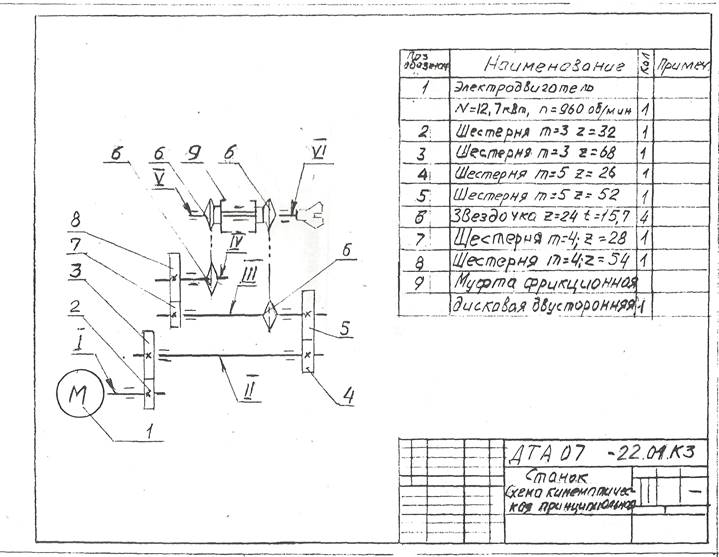 Поз. обознач. Наименование Кол Примеч.
1 Электродвигатель
N=12,7кВт, n=960 об/мин 1
2 Шестерня m=3 z=32 1
3 Шестерня m=3 z=68 1
4 Шестерня m=5 z=26 1
5 Шестерня m=5 z=52 1
6 Звездочка z=24 t=15,7 4
7 Шестерня m=4; z=28 1
8 Шестерня m=4; z=54 1
9 Муфта фрикционная
дисковая двусторонняя 1
6 6 9 6 VI
V
8
7 IV
3 III 6
2 5
I
M II 4
1
ДТА 07 -22.01.КЗ
Станок
Схема кинематичес-
кая принципиальная